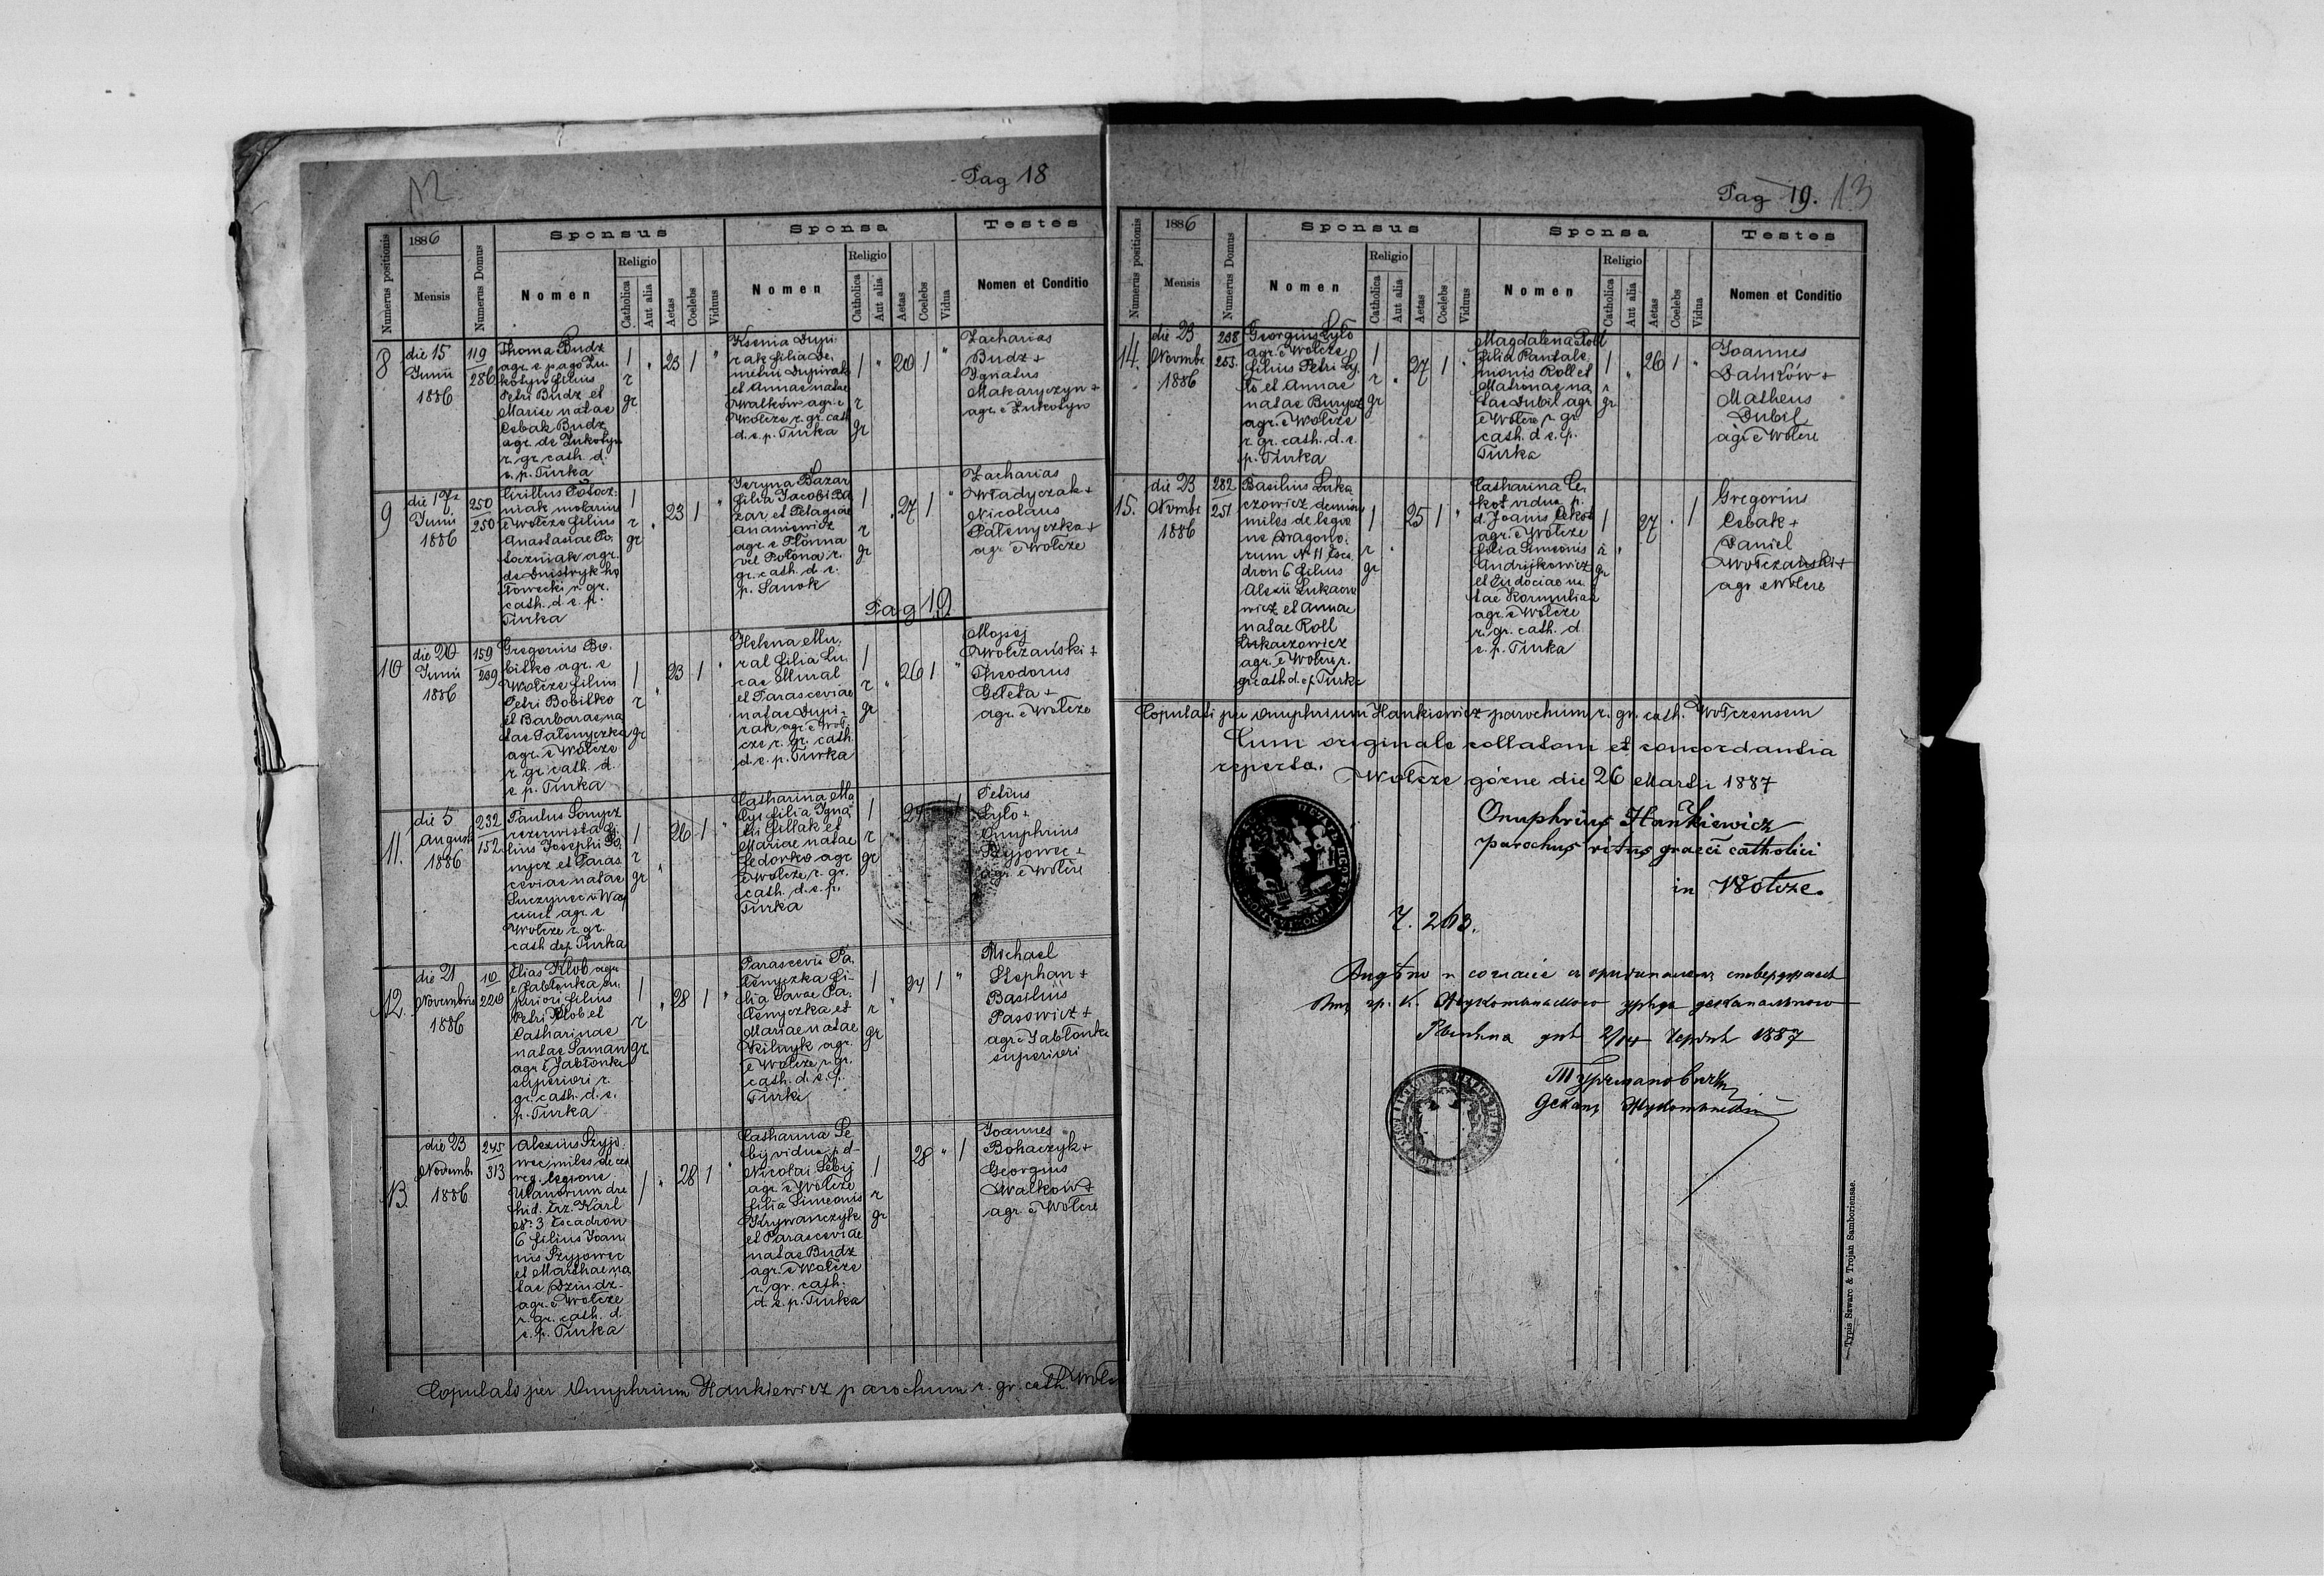 12
Pag 18
Numerus positionis
1886
Mensis
Numerus Domus
Sponsus
Nomen
Religio
Catholica
Aut alia
Aetas
Coelebs
Viduus
Sponsa
Nomen
Religio
Catholica
Aut alia
Aetas
Coelebs
Vidua
Testes
Nomen et Conditio
8
die 15
Junii
1886
119
286
Thoma Budz
agr. e pago Łu-
kotyn filius
Petri Budz et
Mariae natae
Cebak Budz
agr. de Łukotyn
r. gr. cath. d.
e. p. Turka
1
r
gr
23
1
Ksenia Dupi-
rak filia De-
metrii Dupirak
et Annae natae
Walków agr. e
Wołcze r. gr. cath.
d. e. p. Turka
1
r
gr
20
1
Zacharias
Budz +
Ignatus
Makaryczyn +
agr. e Łukotyn
9
die 17
Junii
1886
250
250
Cirillus Potocz-
niak molarius
e Wołcze filius
Anastasiae Po-
toczniak agr.
de Dnistryk ho-
łowecki r. gr.
cath. d. e. p.
Turka
1
r
gr
23
1
Iryna Bazar
filia Jacobi Ba
zar et Pelagiae
Ananiewicz
agr. e Płonna
vel Połona r.
gr. cath. d. e.
p. Sanok
1
r
gr
27
1
Zacharias
Władyczak +
Nicolaus
Patenyczka +
agr. e Wołcze
Pag 19
10
die 20
Junii
1886
159
239
Gregorius Bo-
bitko agr. e
Wołcze filius
Petri Bobitko
et Barbarae na
tae Patenyczka
agr. e Wołcze
r. gr. cath. d.
e. p. Turka
1
r
gr
23
1
Helena Mu-
ral filia Lu-
cae Mural
et Parasceviae
natae Dupi-
rak agr. e Woł-
cze r. gr. cath.
d. e. p. Turka
1
r
gr
26
1
Mojsej
Wołczański +
Theodorus
Geleta +
agr. e Wołcze
11.
die 5
Augusti
1886
232
152
Paulus
rezerwista fi-
lius Josephi
et Paras
ceviae natae
agr. e
Wołcze r. gr.
cath. d. e. p. Turka
1
r
gr
26
1
Catharina
filia Igna
tii et
Mariae natae
Fedorko agr.
e Wołcze r. gr.
cath. d. e. p.
Turka
1
r
gr
Petrus
Łyło +
Onuphrius
Szyjowec +
agr. e Wołcze
12.
die 21
Novembris
1886
10
220
Elias Klob agr.
e Jabłonka su-
periori filius
Petri Klob et
Catharinae
natae Saman
agr. e Jabłonka
superiori r.
gr. cath. d. e.
p. Turka
1
r
gr
28
1
Parascevia Pa-
tenyczka fi-
lia Savae Pa-
tenyczka et
Mariae natae
Kilnyk agr.
e Wołcze r. gr.
cath. d. e. p.
Turka
1
r
gr
24
1
Michael
Stephan +
Basilius
Pasowicz +
agr. e Jabłonka
superiori
13
die 23
Novemb.
1886
245
313
Alexius Szyjo
wec miles de caes
reg. legione
Ulanorum
Erz. Karl
Nr. 3 Escadron
6 filius Joan
nis Szyjowec
et Marthae na
tae Dziudz-
agr. e Wołcze
r. gr. cath. d.
e. p. Turka
1
28
1
Catharina Se
bij vidua p. d-
Nicolai Sebij
agr. e Wołcze
filia Simeonis
Krywanczyk
et Parasceviae
natae Budz
agr. e Wołcze
r. gr. cath.
d. e. p. Turka
1
r
gr
28
1
Joannes
Bohaczyk +
Georgius
Walków +
agr. e Wołcze
Copulati per Onuphrium Hankiewicz parochum r. gr. cath.
Pag 19. 13
Numerus positionis
1886
Mensis
Numerus Domus
Sponsus
Nomen
Religio
Catholica
Aut alia
Aetas
Coelebs
Viduus
Sponsa
Nomen
Religio
Catholica
Aut alia
Aetas
Coelebs
Vidua
Testes
Nomen et Conditio
14.
die 23
Novmbr
1886
238
253.
Georgius Łyło
agr. e Wołcze
filius Petri Ły-
ło et Annae
natae Burycz
agr. e Wołcze
r. gr. cath. d. e.
p. Turka
1
r
gr
27
1
Magdalena Roll
filia Pantale
monis Roll et
Matronae na
tae Dubil agr
e Wołcze r. gr.
cath. d. e. p.
Turka
1
r
gr
26
1
Joannes
Dańków +
Matheus
Dubil
agr. e Wołcze
15.
die 23
Novmbr
1886
282
251
Basilius Łuka
czowicz
miles de legio
ne Dragono-
rum № 11 Esca-
dron 6 filius
Alexii Łukaczo
wicz et Annae
natae Roll
Łukaczowicz
agr. e Wołcze r.
gr. cath. d. e. p. Turka
1
r
gr
25
1
Catharina Ce-
kot vidua p.
d. Joanis Cekot
agr. e Wołcze
filia Simeonis
Andrijkowicz
et Eudociae na
tae Kormuliak
agr. e Wołcze
r. gr. cath. d.
e. p. Turka
1
r
gr
27
1
Gregorius
Cebak +
Daniel
Wołczański +
agr. e Wołcze
Copulati per Onuphrium Hankiewicz parochum r. gr. cath. Wołczensem
Cum originale collatam et concordantia
reperta.
Wołcze górne die 26 Marti 1887
Onuphrius Hankiewicz
parochus ritus graeci catholici
in Wołcze.
Ч. 263.
Видѣно и согласіе съ оригиналомъ стверджаесь
Вид гр. к. Жукотиньского уряда деканального
дня 2/14 Червня 1887
Турчмановичъ
деканъ Жукотинскій
Typis Szwarc & Trojan Samboriensae.